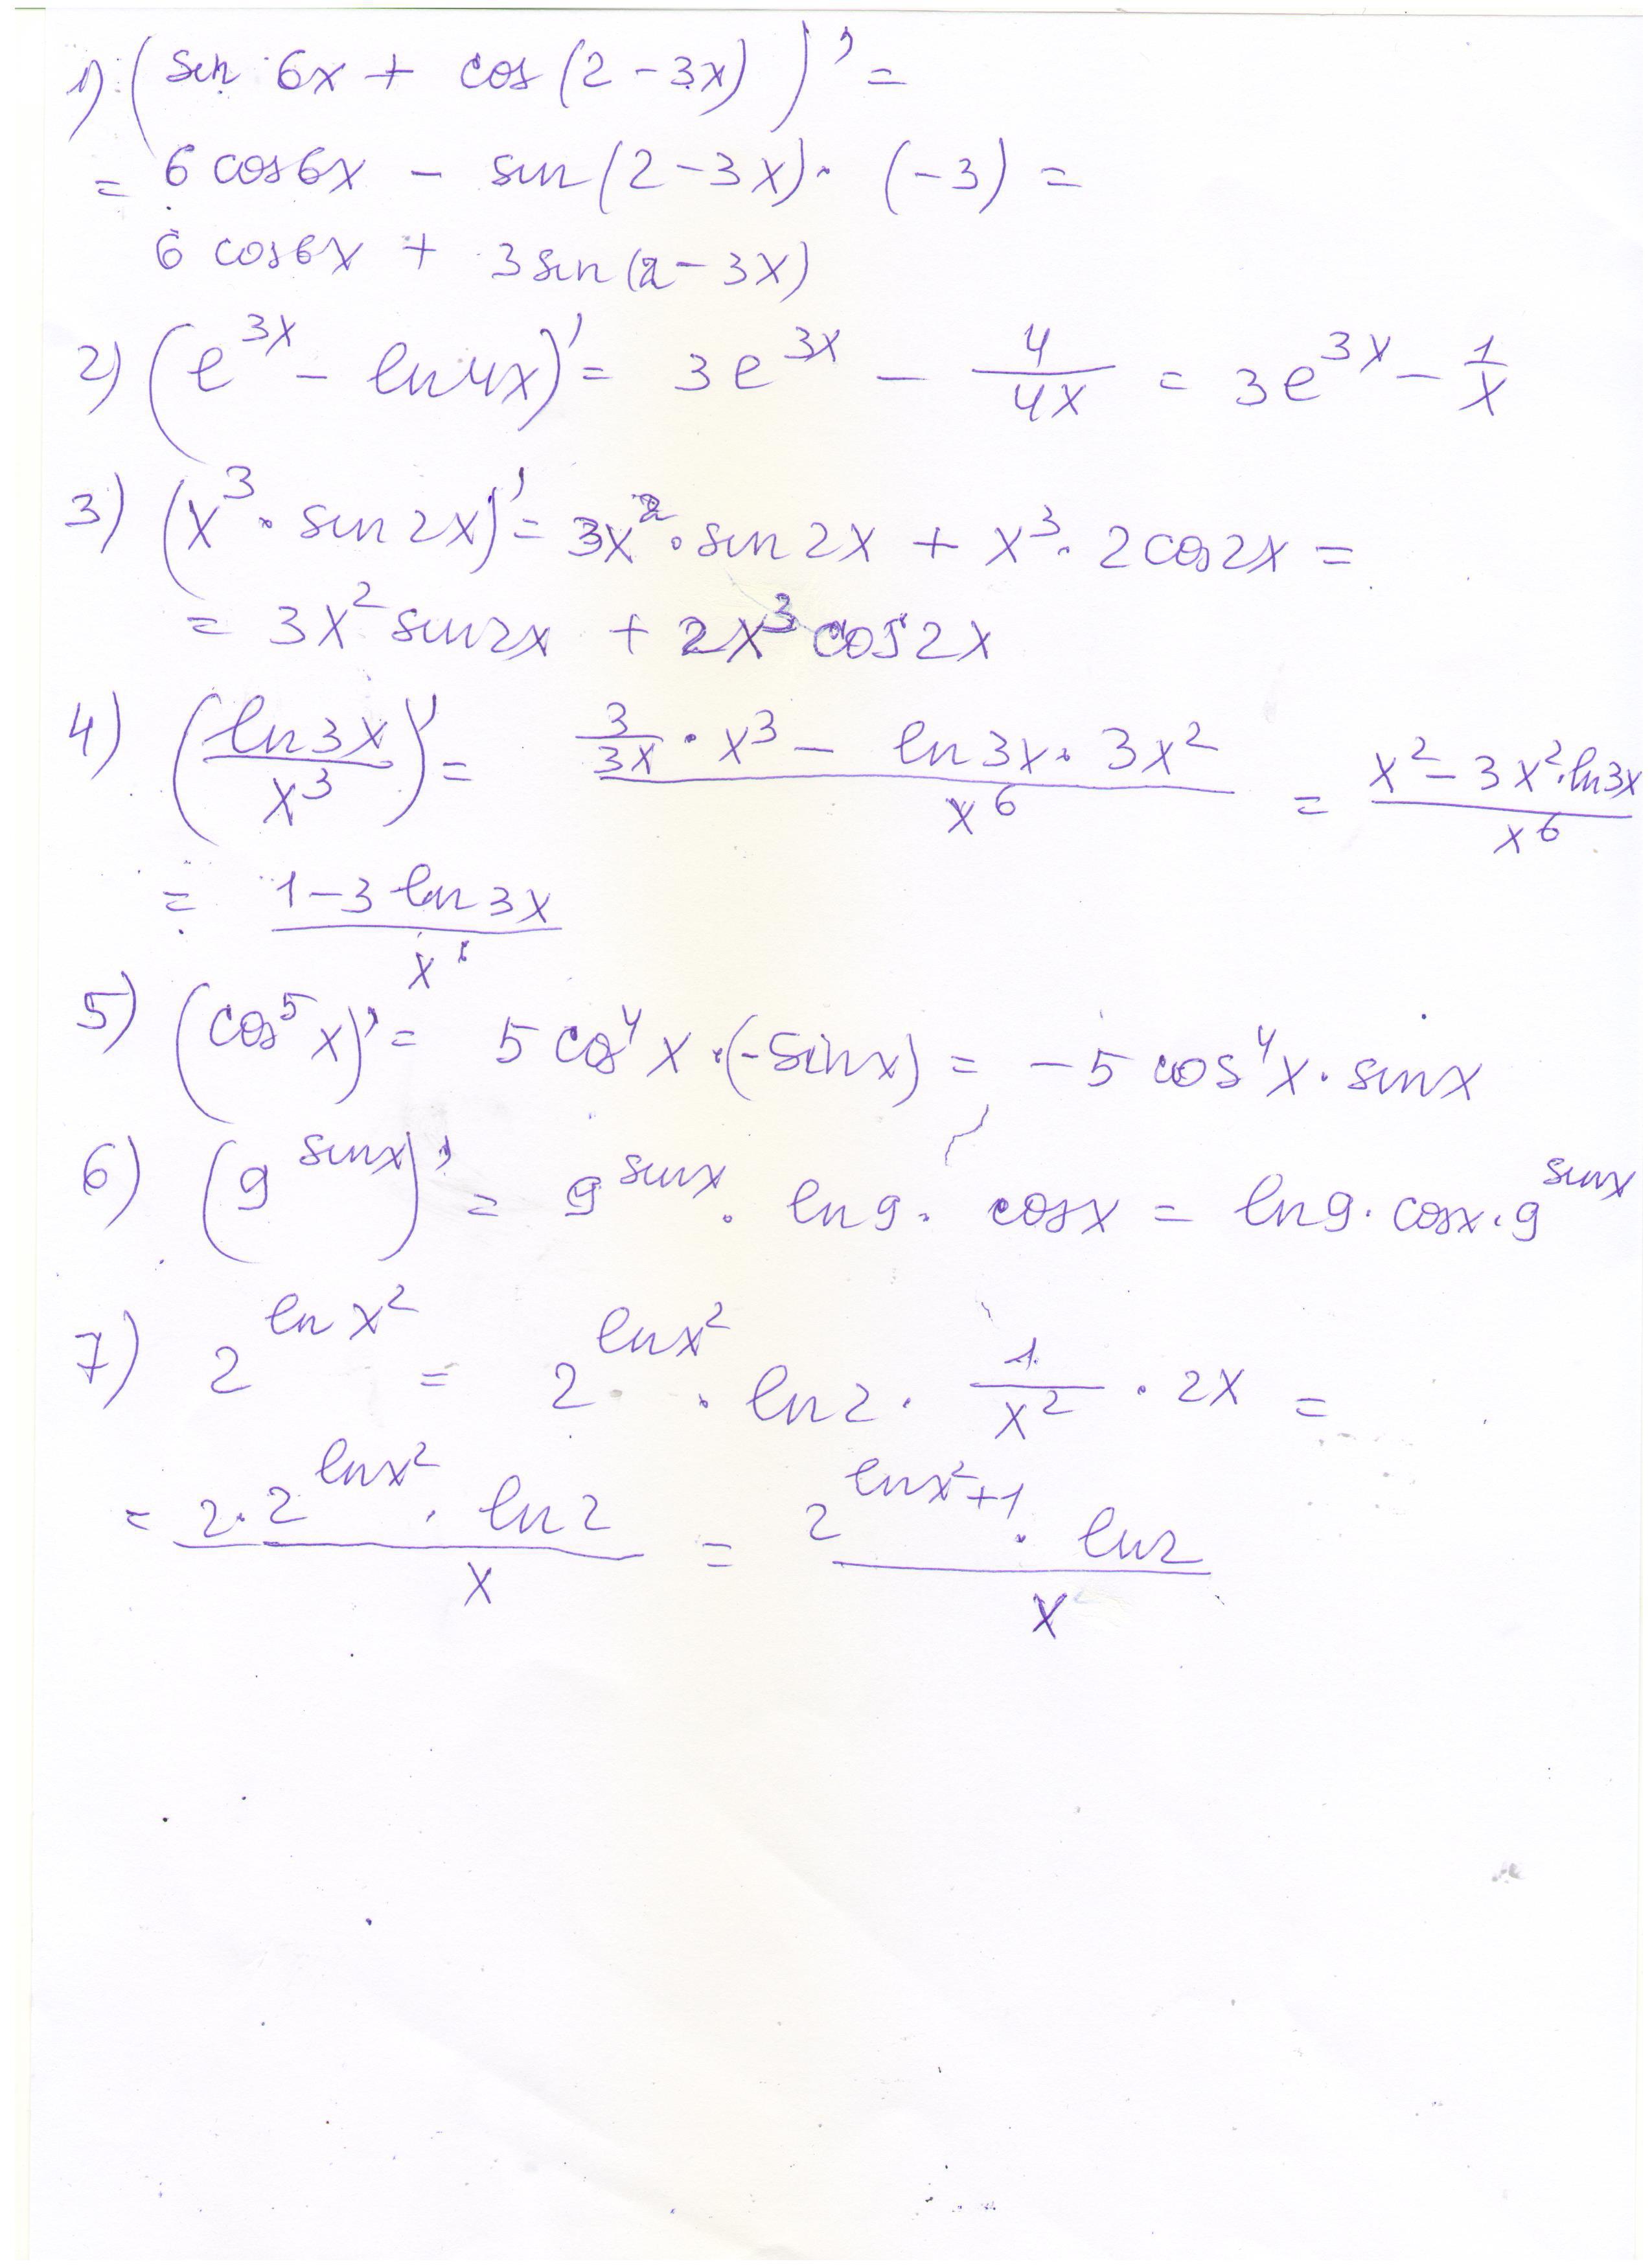 1) (sin 6x + cos (2 - 3x))' =
= 6 cos6x - sin(2 - 3x) · (-3) =
6 cos6x + 3 sin(2 - 3x)
2) (e^{3x} - ln4x)' = 3e^{3x} - \frac{4}{4x} = 3e^{3x} - \frac{1}{x}
3) (x^3 · sin2x)' = 3x^2 · sin2x + x^3 · 2cos2x =
= 3x^2 sin2x + 2x^3 cos2x
4) (\frac{ln3x}{x^3})' = \frac{\frac{3}{3x} · x^3 - ln3x · 3x^2}{x^6} = \frac{x^2 - 3x^2 · ln3x}{x^6}
= \frac{1 - 3 ln 3x}{x}
5) (cos^5 x)' = 5 cos^4 x · (-sinx) = -5 cos^4 x · sinx
6) (9^{sinx})' = 9^{sinx} · ln9 · cosx = ln9 · cosx · 9^{sinx}
7) 2^{ln x^2} = 2^{lnx^2} · ln2 · \frac{1}{x^2} · 2x =
= \frac{2 · 2^{lnx^2} · ln2}{x} = \frac{2^{lnx^2+1} · ln2}{x}